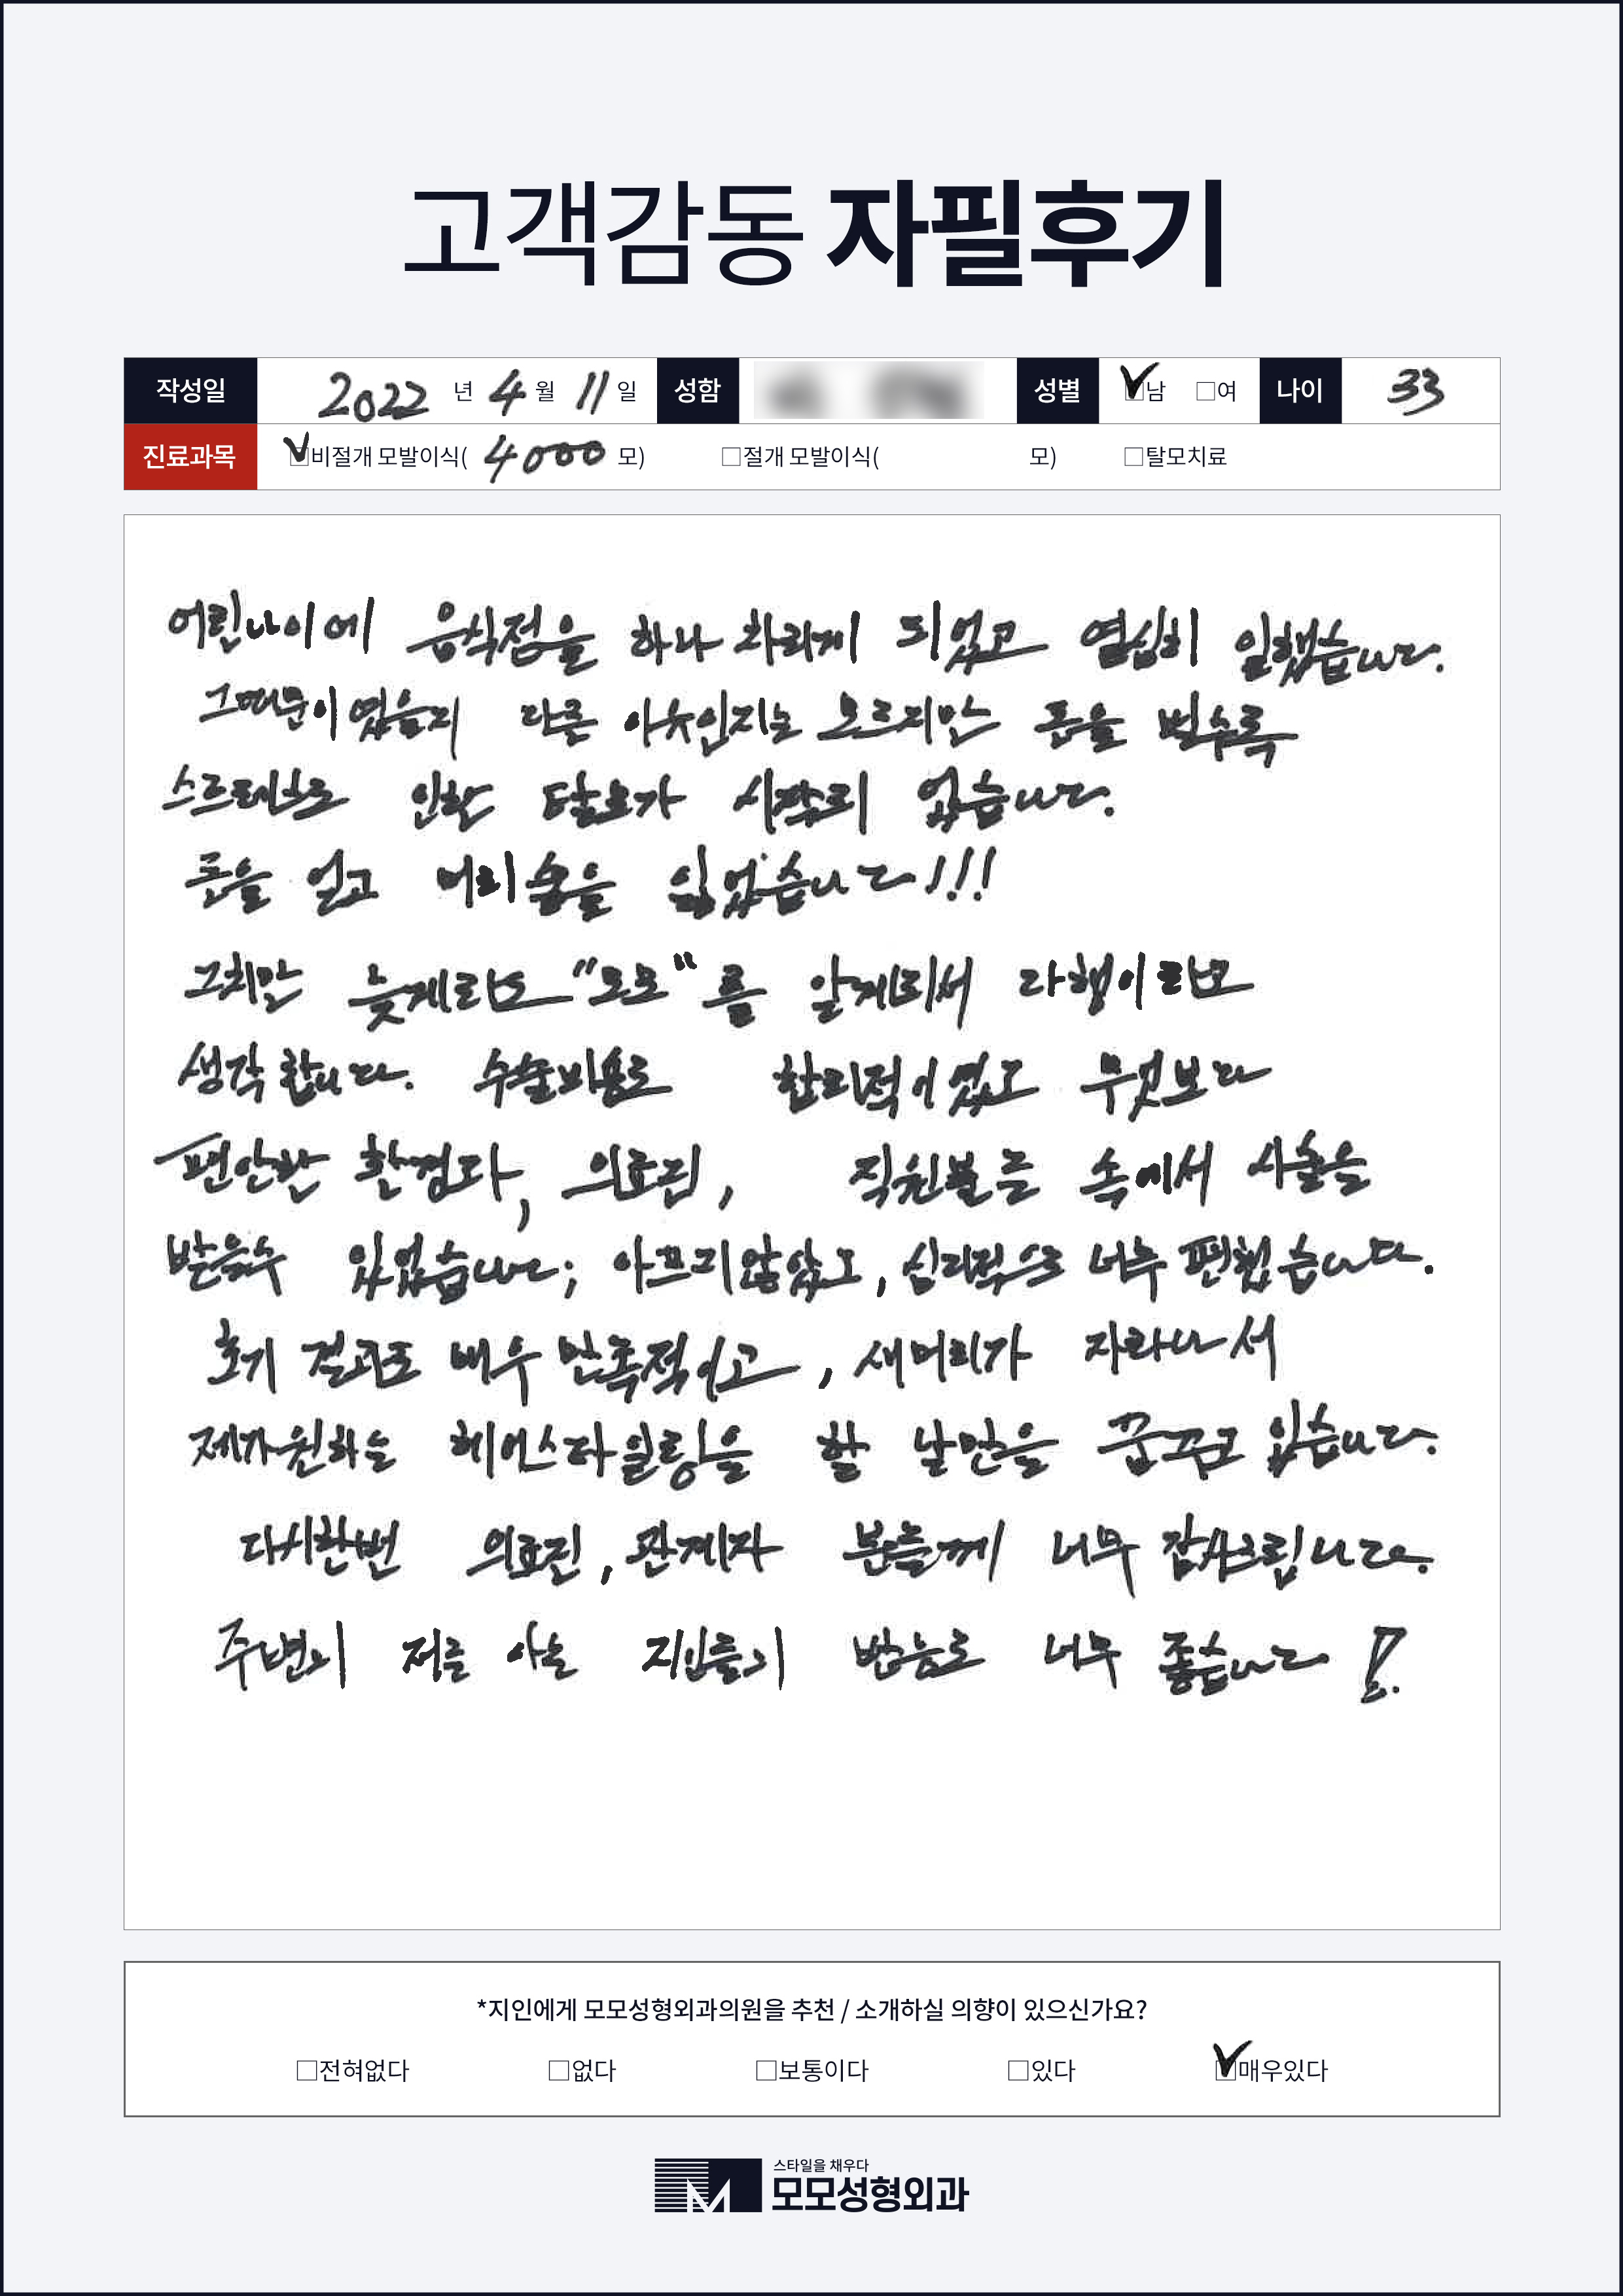 고객감동 자필후기
작성일 2022 년 4 월 11 일 성함 성별 ☑남 □여 나이 33
진료과목 ☑비절개 모발이식( 4000 모) □절개 모발이식( 모) □탈모치료
어린나이에 음식점을 하나 차리게 되었고 열심히 일했습니다.
그때문이였을지 다른 이유인지는 모르지만 돈을 벌수록
스트레스로 인한 탈모가 시작되 었습니다.
돈을 얻고 머리숱을 잃었습니다!!!
그치만 늦게라도 "모모"를 알게되서 다행이라고
생각합니다. 수술비용도 합리적이였고 무엇보다
편안한 환경과, 의료진, 직원분들 속에서 시술을
받을수 있었습니다; 아프지않았고, 심리적으로 너무 편했습니다.
초기 결과도 매우 만족적이고, 새머리가 자라나서
제가원하는 헤어스타일링을 할 날만을 꿈꾸고 있습니다.
다시한번 의료진, 관계자 분들께 너무 감사드립니다.
주변의 저를 아는 지인들의 반응도 너무 좋습니다 !.
*지인에게 모모성형외과의원을 추천 / 소개하실 의향이 있으신가요?
□전혀없다 □없다 □보통이다 □있다 ☑매우있다
스타일을 채우다
모모성형외과